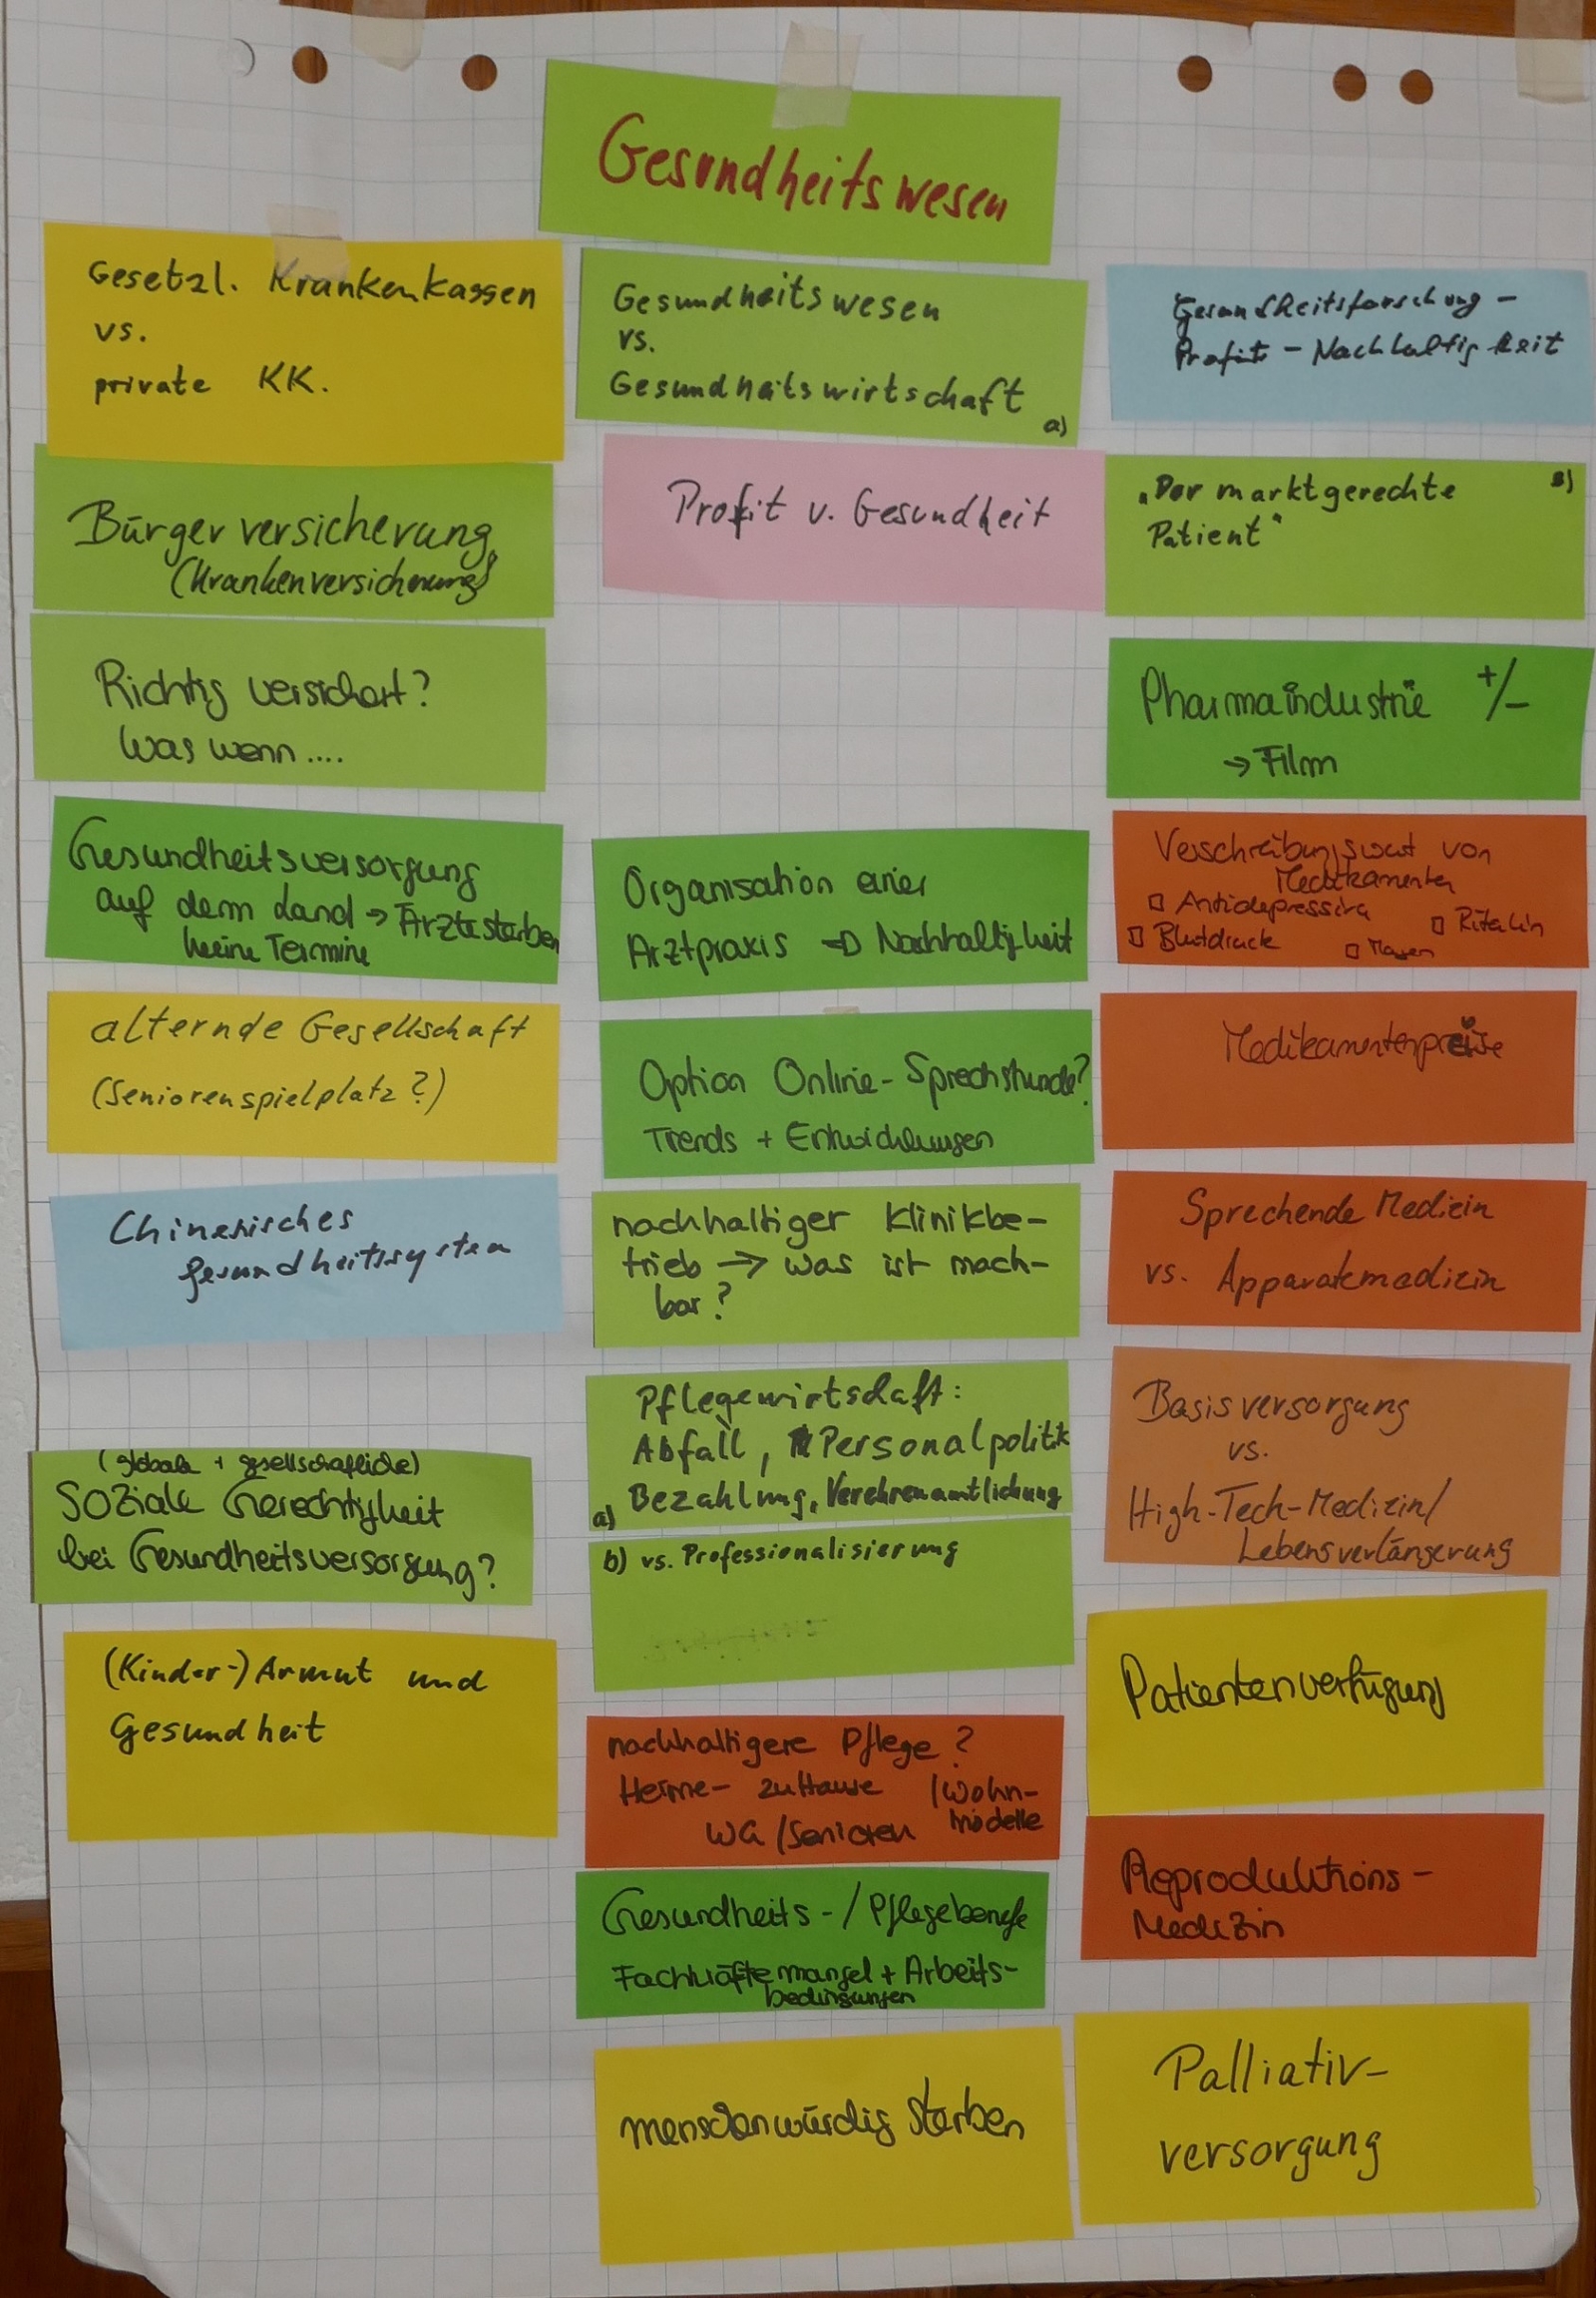 Gesundheitswesen
Gesetzl. Krankenkassen
vs.
private KK.
Bürgerversicherung
(Krankenversicherung)
Richtig versichert?
Was wenn ....
Gesundheitsversorgung
auf dem Land → Ärztesterben
keine Termine
alternde Gesellschaft
(Seniorenspielplatz?)
Chinesisches
Gesundheitssystem
(globale + gesellschaftliche)
Soziale Gerechtigkeit
bei Gesundheitsversorgung?
(Kinder-) Armut und
Gesundheit
Gesundheitswesen
vs.
Gesundheitswirtschaft
a)
Profit v. Gesundheit
Organisation einer
Arztpraxis => Nachhaltigkeit
Option Online-Sprechstunde?
Trends + Entwicklungen
nachhaltiger Klinikbe-
trieb → was ist mach-
bar?
Pflegewirtschaft:
Abfall, Personalpolitik
a) Bezahlung, Verehrenamtlichung
b) vs. Professionalisierung
nachhaltigere Pflege?
Heime- zuHause /Wohn-
WG /Senioren modelle
Gesundheits-/Pflegeberufe
Fachkräftemangel + Arbeits-
bedingungen
menschenwürdig sterben
Gesundheitsforschung -
Profit - Nachhaltigkeit
„Der marktgerechte
Patient"
Pharmaindustrie +/-
→ Film
Verschreibungswut von
Medikamenten
□ Antidepressiva
□ Ritalin
□ Blutdruck
□ Magen
Medikamentenpreise
Sprechende Medizin
vs. Apparatemedizin
Basisversorgung
vs.
High-Tech-Medizin/
Lebensverlängerung
Patientenverfügung
Reproduktions-
Medizin
Palliativ-
versorgung